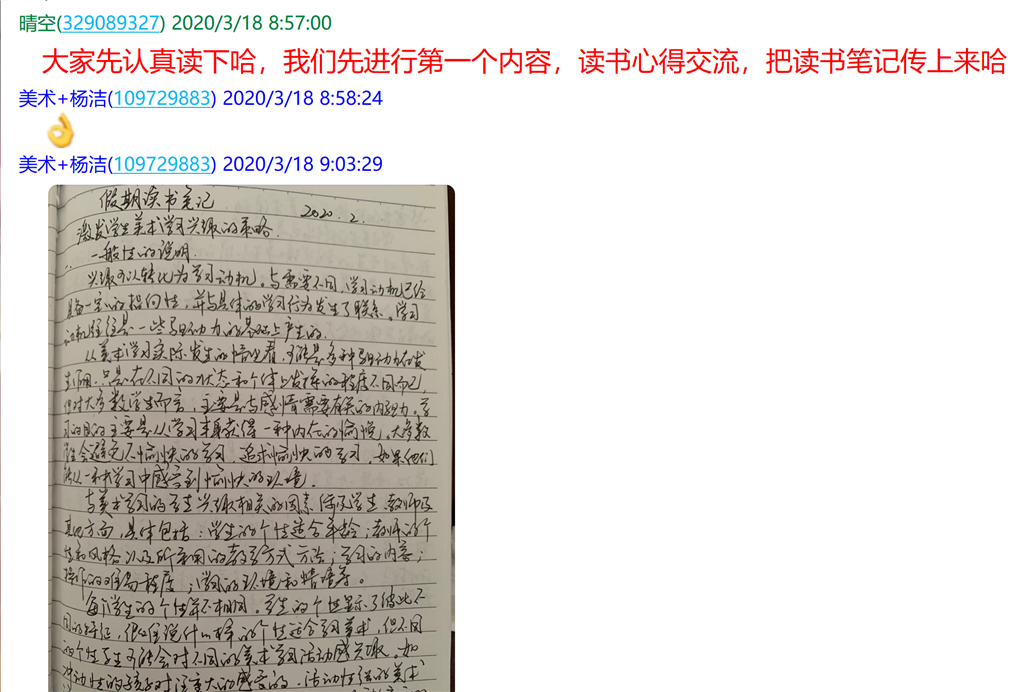 晴空(329089327) 2020/3/18 8:57:00
大家先认真读下哈，我们先进行第一个内容，读书心得交流，把读书笔记传上来哈
美术+杨洁(109729883) 2020/3/18 8:58:24
美术+杨洁(109729883) 2020/3/18 9:03:29
假期读书笔记
2020.2.
激发学生美术学习兴趣的策略.
一般性的说明.
兴趣可以转化为学习动机。与需要不同,学习动机已经
具备一定的指向性,并与具体的学习行为发生了联系。学习
动机往往是一些驱动力的基础上产生的.
从美术学习实际发生的情况看,可能是多种驱动力在发
生作用.只是在不同的状态和个体上发挥的程度不同而已,
但对大多数学生而言,主要是与感情需要有关的内驱力.学
习的目的主要是从学习本身获得一种内在的愉悦.大多数
学生会避免不愉快的学习,追求愉快的学习,如果他们
能从一种学习中感受到愉快的环境.
与美术学习的学生兴趣相关的因素涉及学生、教师及
其他方面,具体包括:学生的个性适合年龄;教师的个
性和风格以及所采用的教学方式方法;学习的内容;
操作的难易程度;学习的环境和情境等。
每个学生的个性并不相同。学生的个性显示了彼此不
同的特征,很难说什么样的个性适合学习美术,但不同
的个性学生可能会对不同的美术学习活动感兴趣.如
冲动性的孩子对注重大的感受的、活动性强的美术